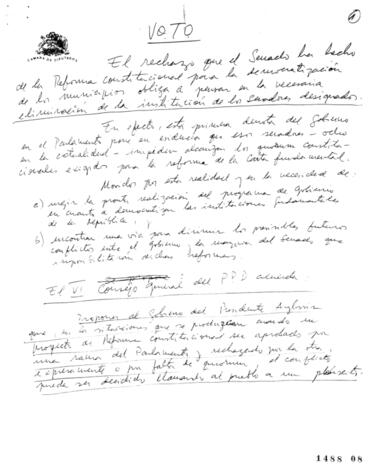 CAMARA DE DIPUTADOS
VOTO
El rechazo que el Senado ha hecho
de la Reforma constitucional para la democratización
de los municipios obliga a pensar en la necesaria
eliminación de la institución de los senadores designados.
En efecto, esta primera derrota del Gobierno
en el Parlamento pone en evidencia que esos senadores - ocho
en la actualidad - impiden alcanzar los quorum constitu-
cionales exigidos para la reforma de la Carta fundamental.
Movidos por esta realidad y en la necesidad de:
a) exigir la pronta realización del programa de Gobierno
en cuanto a democratizar las instituciones fundamentales
de la República;
b) encontrar una vía para dirimir los posibles futuros
conflictos entre el Gobierno y la mayoría del Senado que
imposibilitarán dichas Reformas.
El VI Consejo General del PPD acuerda:
Proponer al Gobierno del Presidente Aylwin
que, en las situaciones que se produzcan cuando un
proyecto de Reforma constitucional sea aprobado por
una rama del Parlamento y rechazado por la otra,
expresamente o por falta de quorum, el conflicto
pueda ser decidido llamando al pueblo a un plebiscito.
1488 08